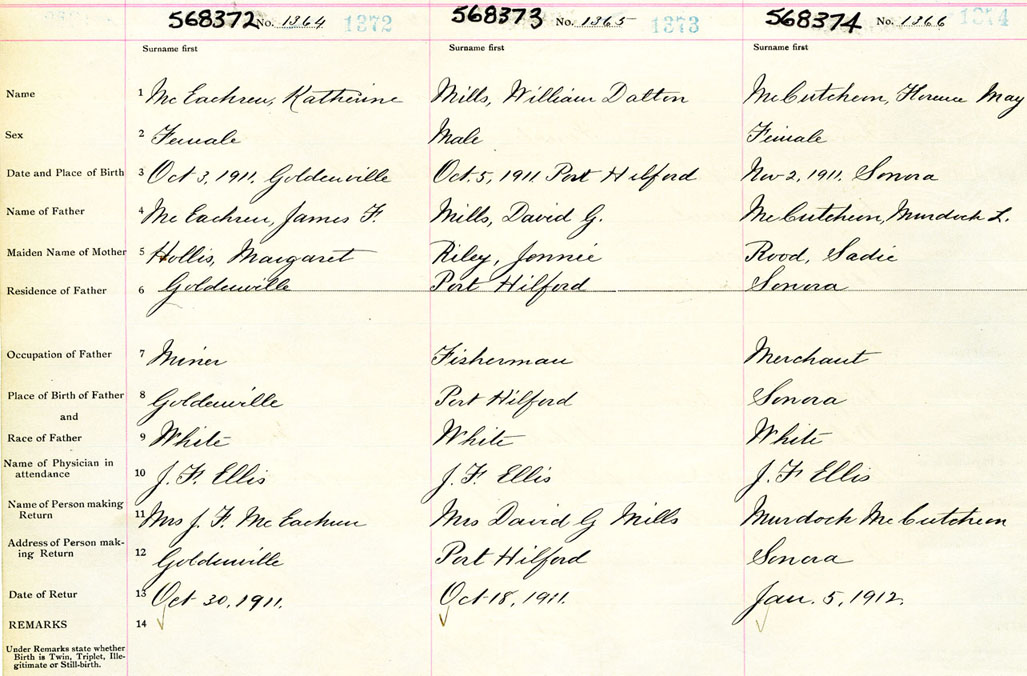 568372 No. 1364 1372 568373 No. 1365 1373 568374 No. 1366 1374
Surname first Surname first Surname first
Name 1 McEachren, Katherine Mills, William Dalton McCutcheon, Florence May
Sex 2 Female Male Female
Date and Place of Birth 3 Oct 3, 1911, Goldenville Oct. 5, 1911 Port Hilford Nov 2, 1911, Sonora
Name of Father 4 McEachren, James F. Mills, David G. McCutcheon, Murdoch L.
Maiden Name of Mother 5 Hollis, Margaret Riley, Jennie Rood, Sadie
Residence of Father 6 Goldenville Port Hilford Sonora
Occupation of Father 7 Miner Fisherman Merchant
Place of Birth of Father 8 Goldenville Port Hilford Sonora
and
Race of Father 9 White White White
Name of Physician in
attendance 10 J. F. Ellis J. F. Ellis J. F. Ellis
Name of Person making
Return 11 Mrs J. F. McEachren Mrs David G Mills Murdoch McCutcheon
Address of Person mak-
ing Return 12 Goldenville Port Hilford Sonora
Date of Retur 13 Oct 30, 1911. Oct 18, 1911. Jan. 5, 1912.
REMARKS 14
Under Remarks state whether
Birth is Twin, Triplet, Ille-
gitimate or Still-birth.